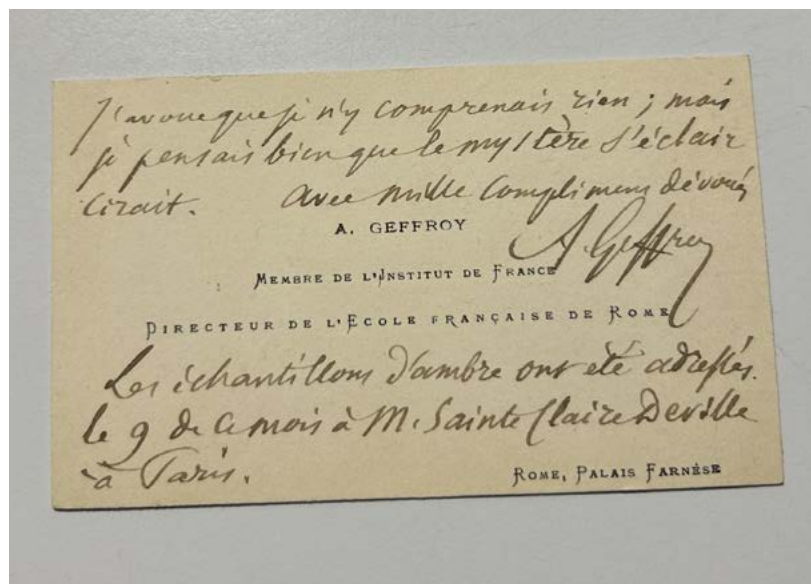 J'avoue que je n'y comprenais rien ; mais
je pensais bien que le mystère s'éclair
cirait. Avec mille complimens dévoués
A. GEFFROY
A. Geffroy
MEMBRE DE L'INSTITUT DE FRANCE
DIRECTEUR DE L'ECOLE FRANÇAISE DE ROME
Les échantillons d'ambre ont été adressés
le 9 de ce mois à M. Sainte Claire Deville
à Paris.
ROME, PALAIS FARNÈSE